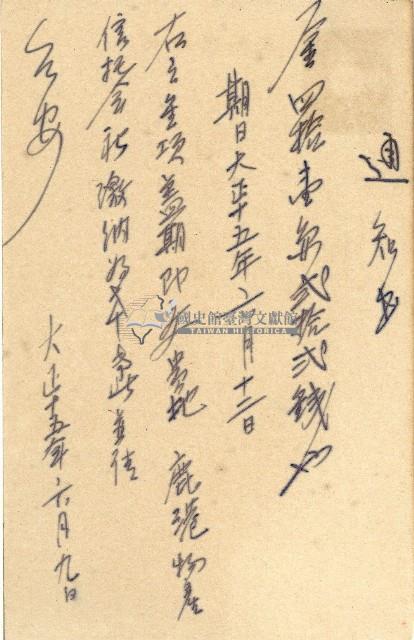 通知書
金四拾壹円貳拾貳錢也
期日大正十五年六月十二日
右之金項至期即在當地 鹿港物產
信托会社繳納為幸 專此並請
台安
大正十五年六月九日
國史館臺灣文獻館
TAIWAN HISTORICA